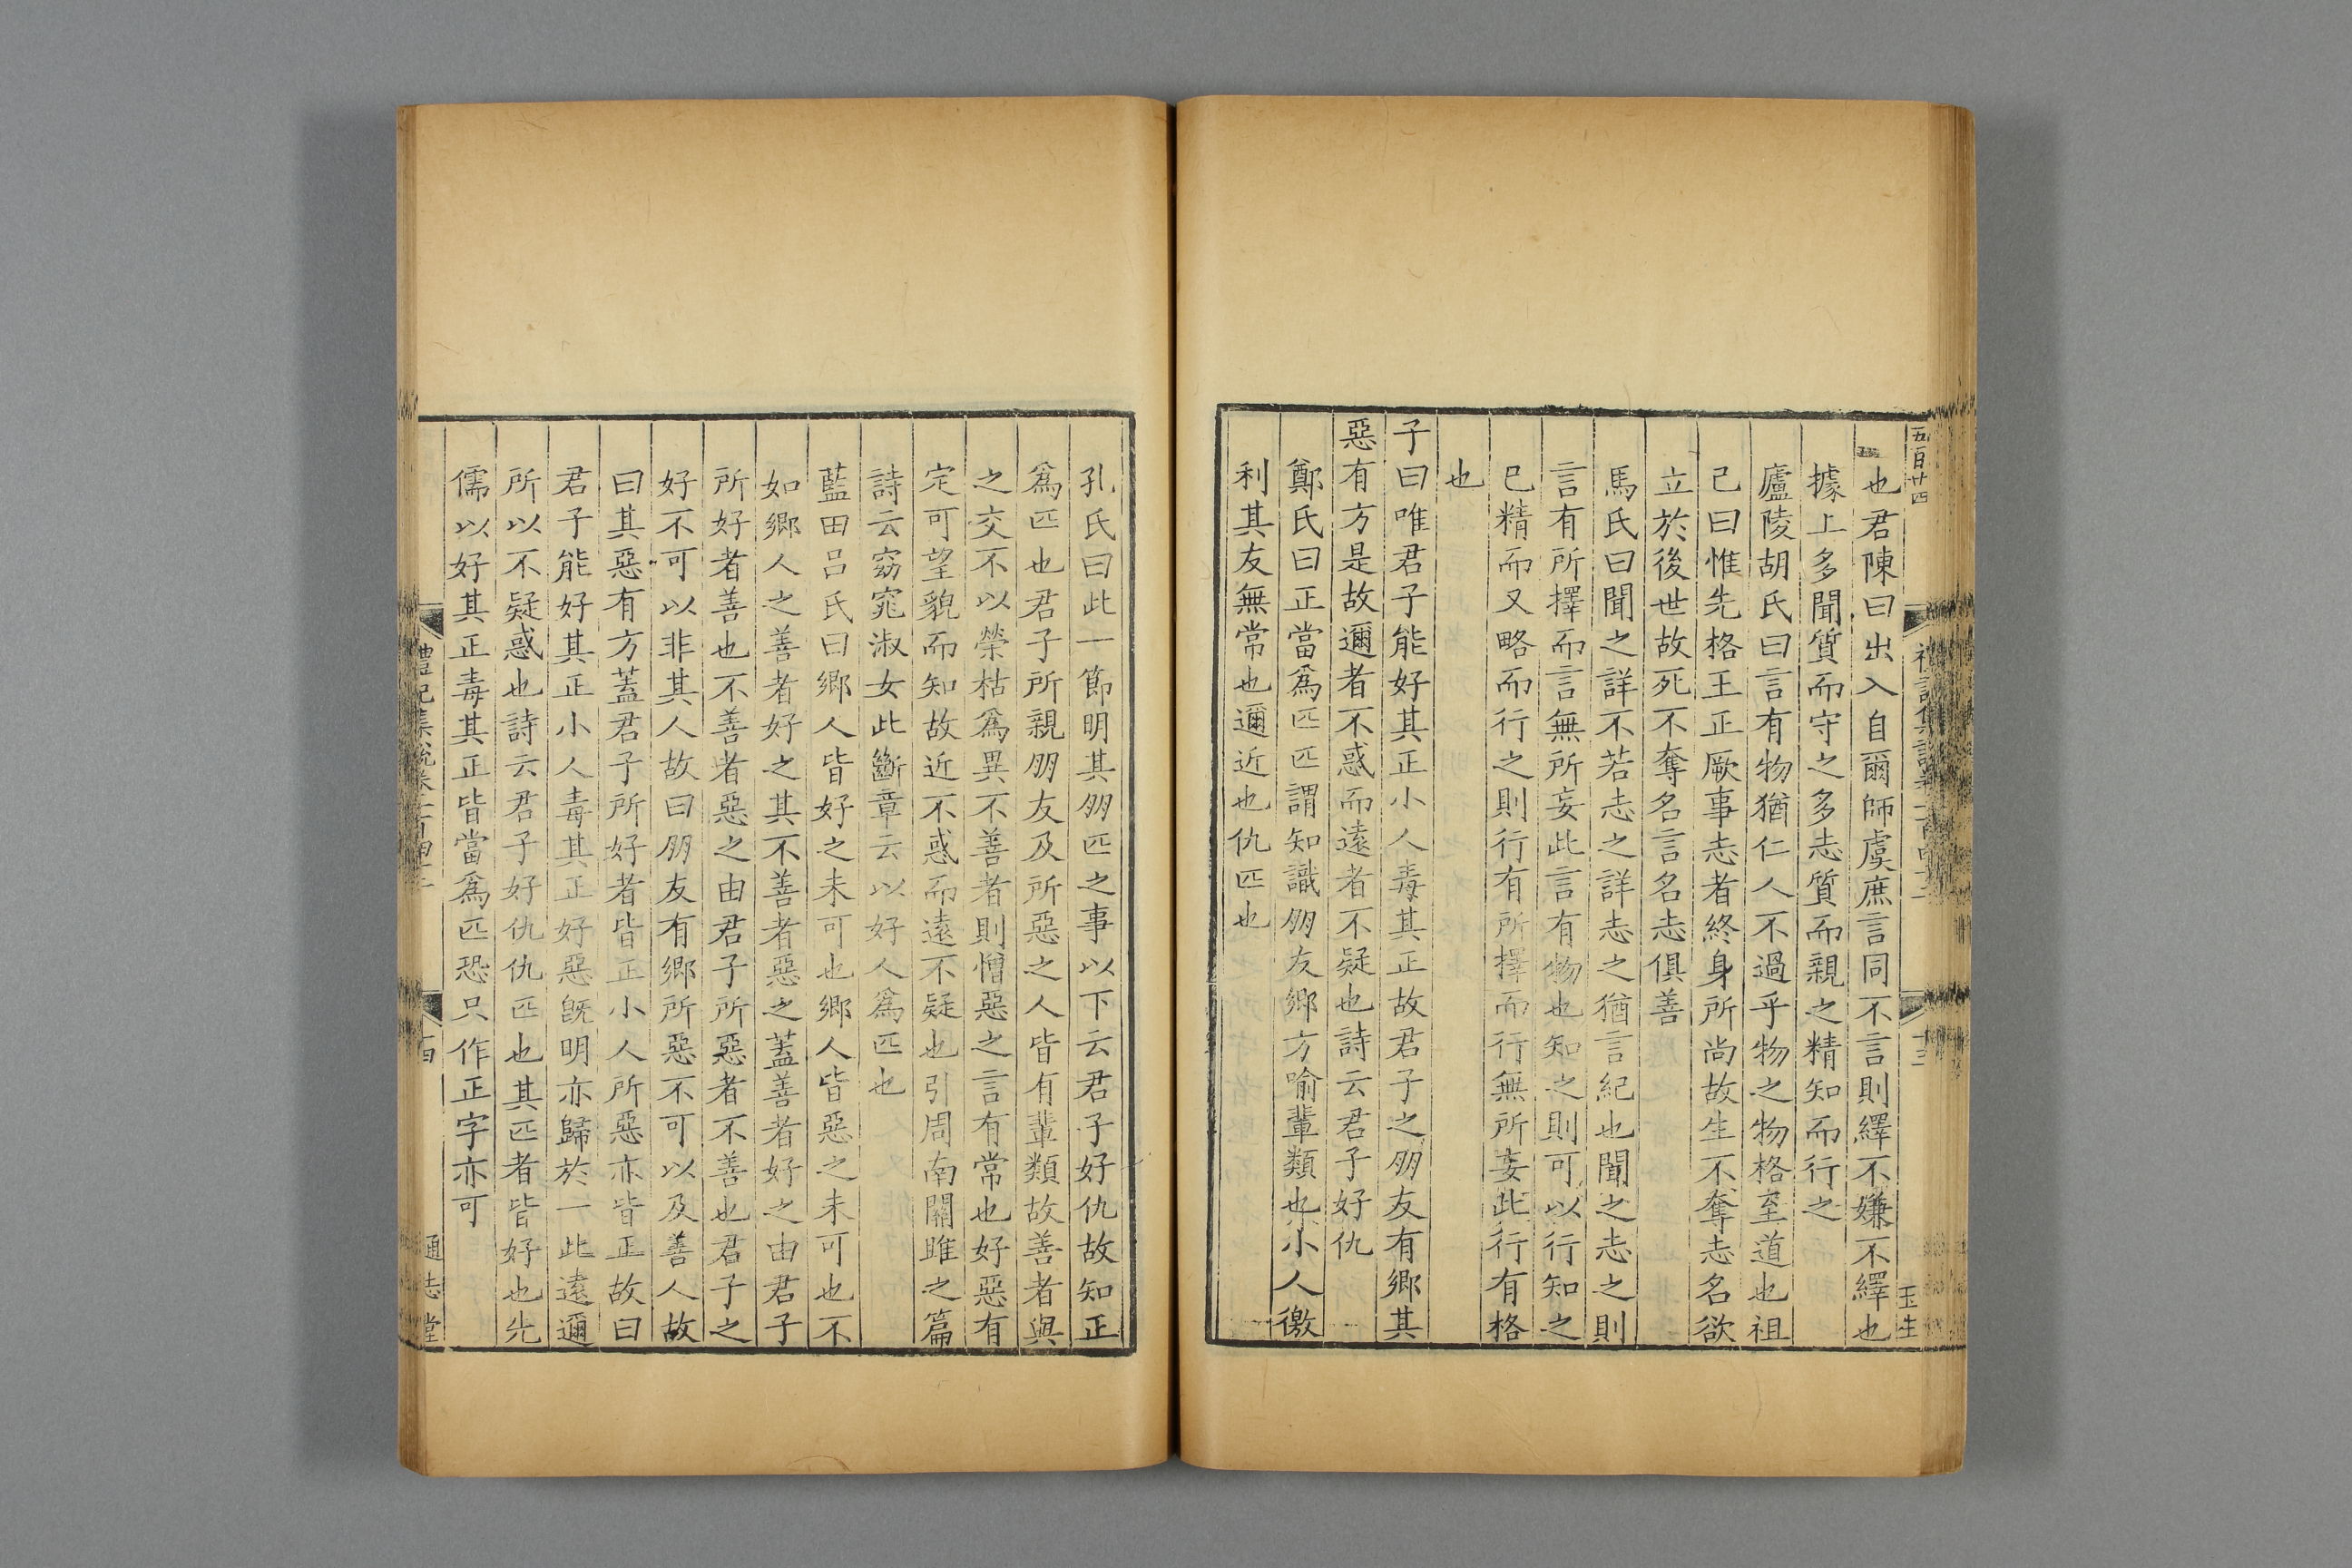 五百廿四
一也君陳曰出入自爾師虞庶言同不言則繹不嫌不繹也
據上多聞質而守之多志質而親之精知而行之
廬陵胡氏曰言有物猶仁人不過乎物之物格至道也祖
已曰惟先格王正厥事志者終身所尚故生不奪志名欲
立於後世故死不奪名言名志俱善
馬氏曰聞之詳不若志之詳志之猶言紀也聞之志之則
言有所擇而言無所妄此言有物也知之則可以行知之
已精而又略而行之則行有所擇而行無所妄此行有格
也
子曰唯君子能好其正小人毒其正故君子之朋友有鄉其
惡有方是故邇者不惑而遠者不疑也詩云君子好仇
鄭氏曰正當爲匹匹謂知識朋友鄉方喻輩類也小人徼
利其友無常也邇近也仇匹也
十三
玉生
孔氏曰此一節明其朋匹之事以下云君子好仇故知正
爲匹也君子所親朋友及所惡之人皆有輩類故善者與
之交不以榮枯爲異不善者則憎惡之言有常也好惡有
定可望貌而知故近不惑而遠不疑也引周南關雎之篇
詩云窈窕淑女此斷章云以好人爲匹也
藍田呂氏曰鄉人皆好之未可也鄉人皆惡之未可也不
如鄉人之善者好之其不善者惡之蓋善者好之由君子
所好者善也不善者惡之由君子所惡者不善也君子之
好不可以非其人故曰朋友有鄉所惡不可以及善人故
曰其惡有方蓋君子所好者皆正小人所惡亦皆正故曰
君子能好其正小人毒其正好惡旣明亦歸於一此遠邇
所以不疑惑也詩云君子好仇仇匹也其匹者皆好也先
儒以好其正毒其正皆當爲匹恐只作正字亦可
禮記集說卷
通志堂